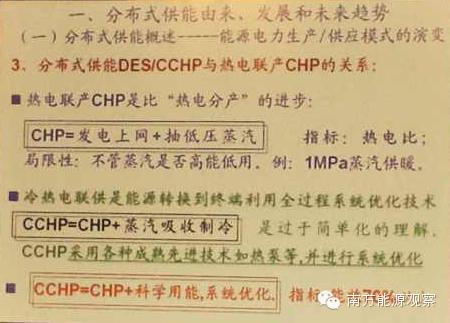 一、分布式供能由来、发展和未来趋势
(一)分布式供能概述-----能源电力生产/供应模式的演变
3、分布式供能DES/CCHP与热电联产CHP的关系:
■ 热电联产CHP是比“热电分产”的进步:
CHP=发电上网+抽低压蒸汽 指标:热电比;
局限性:不管蒸汽是否高能低用。例:1MPa蒸汽供暖。
■ 冷热电联供是能源转换到终端利用全过程系统优化技术
CCHP=CHP+蒸汽吸收制冷 是过于简单化的理解.
CCHP采用各种成熟先进技术如热泵等,并进行系统优化
■ CCHP=CHP+科学用能,系统优化. 指标:能效70%
南方能源观察